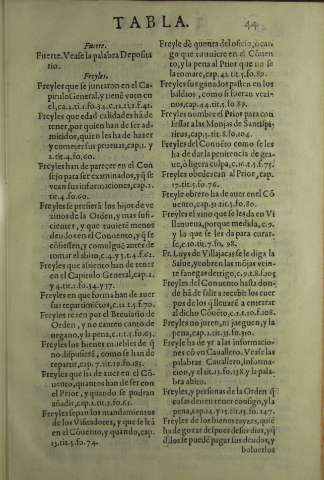 TABLA.
44
Fuerte.
Fuerte. Vease la palabra Deposita
rio.
Freyles.
Freyles que se juntaron en el Ca-
pitulo General, y tienē voto en
el, ca.2.tit.1.fo.34.
Freyles que edad calidades há de
tener, por quien han de ser ad-
mitidos, quien les ha de hazer
y cometer sus prueuas, cap.1. y
2.tit.4.fo.60.
Freyles han de parecer en el Con
sejo para ser examinados, y q̃ se
vean sus informaciones, cap.2.
tit.4.fo.60.
Freyles se prefierā los hijos de ve
zinos de la Orden, y mas sufi-
cientes, y que tuuieré menos
deudos en el Conuento, y q̃ se
cōfiessen, y comulguē antes de
tomar el abito, c.4. y 5.tit.4.f.61.
Freyles que assiento han de tener
en el Capitulo General, cap.2.
y 4.tit.1.fo.34. y 37.
Freyles en que forma han de auer
sus repartimiētos, c.12.tit.5.fo.70.
Freyles rezen por el Breuiario de
Orden, y no cauten canto de
organo, y la pena, c.1.tit.5.fo.63.
Freyles los bienes muebles de q̃
no dispusierē, como se han de
repartir, cap.7.tit.10.fo.185.
Freyles que ha de auer en el Cō-
uento, quantos han de ser con
el Prior, y quando se podran
añadir, cap.2.tit.5.fo.65.
Freyles sepan los mandamientos
de los Visitadores, y que se leā
en el Cōuento, y quando, cap.
13.tit.5.fo.74.
Freyle dè quenta del oficio, ò car
go que tuuiere en el Cōuen
to, y la pena al Prior que no se
la tomare, cap.42.tit.5.fo.89.
Freyles sus ganados pasten en los
baldios, como si fueran vezi-
nos, cap.44.tit.5.fo.89.
Freyles nombre el Prior para con
fessar a las Monjas de Santispi-
ritus, cap.5.tit.6.fo.104.
Freyles del Conuēto como se les
ha de dar la penitencia de gra-
ue, ò ligera culpa, c.15.t.5.f.75.
Freyles obedezcan al Prior, cap.
17.tit.5.fo.76.
Freyle obrero ha de auer en el Cō
uento, cap.31.tit.5.fo.80.
Freyles el vino que se les da en Vi
llanueua, por que medida, c.9.
y la que se les da para curar-
se, c.10.tit.7.fo.98.
Fr. Luys de Villajacas se le diga la
Salue, y cobren las mōjas vein-
te fanegas de trigo, c.9.t.8.f.105
Freyles del Conuento hasta don-
de há de salir a recebir los cuer
pos de los q̃ lleuarē a enterrar
al dicho Cōuēto, c.2.t.10.f.108.
Freyles no juren, ni jueguen, y la
pena, cap.1.tit.13.fo.310.
Freyle ha de yr a las informacio-
nes cō vn Cauallero. Vease las
palabras Cauallero, informa-
cion, y el tit.13.fo.138. y la pala-
bra abito.
Freyles, y personas de la Orden q̃
cosas deuen tener consigo, y la
pena, cap.14. y 15.tit.13.fo.147.
Freyles de los bienos rayzes, quiē
ha de gozar despues de sus dias, y q̃
dī los se puede pagar sus deudos, y
boluerlos